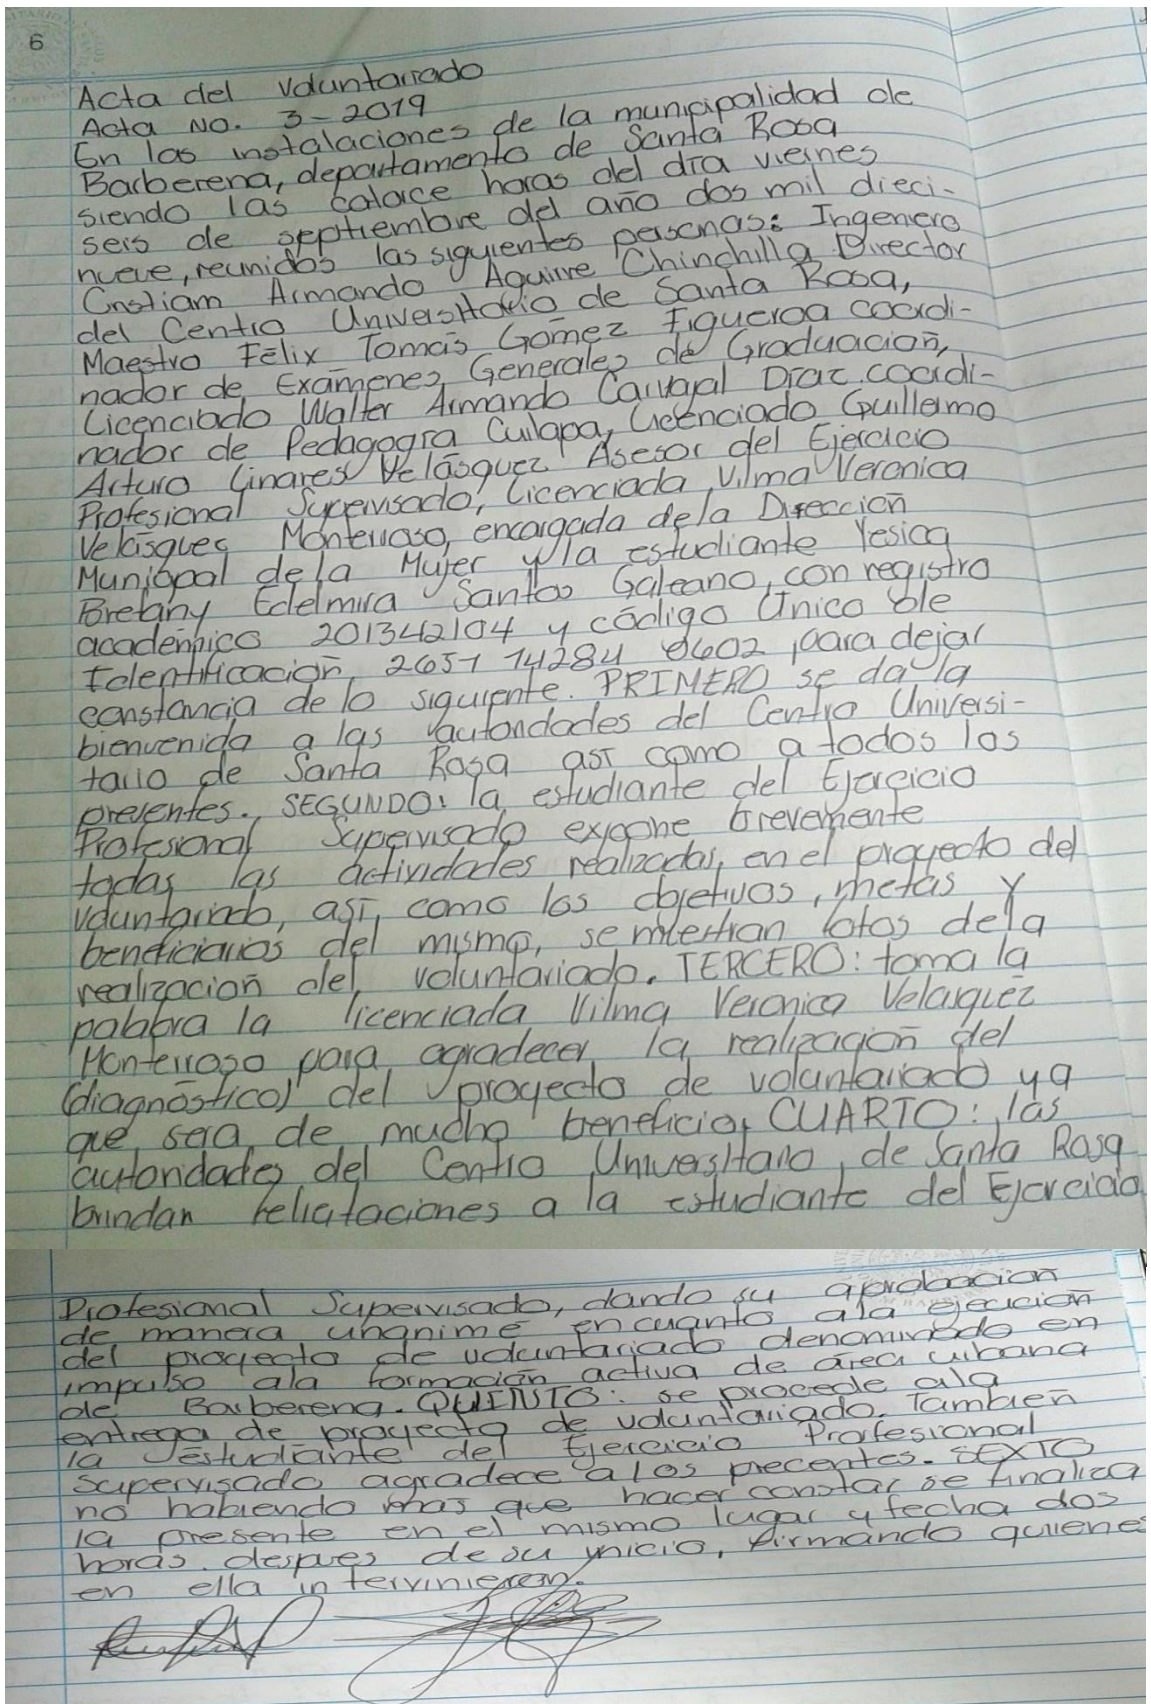 6
Acta del voluntariado
Acta No. 3-2019
En las instalaciones de la municipalidad de
Barberena, departamento de Santa Rosa
siendo las catorce horas del día viernes
seis de septiembre del año dos mil dieci-
nueve, reunidos las siguientes personas: Ingeniero
Cristiam Armando Aguirre Chinchilla Director
del Centro Universitario de Santa Rosa,
Maestro Félix Tomás Gómez Figueroa coordi-
nador de Exámenes Generales de Graduación,
Licenciado Walter Armando Carvajal Díaz coordi-
nador de Pedagogía Cuilapa, Licenciado Guillermo
Arturo Linares Velásquez Asesor del Ejercicio
Profesional Supervisado, Licenciada Vilma Veronica
Velásquez Monterroso, encargada de la Dirección
Municipal de la Mujer y la estudiante Yesica
Bretany Edelmira Santos Galeano, con registro
académico 201342104 y código Único de
Identificación 2651 74284 0602 para dejar
constancia de lo siguiente. PRIMERO se da la
bienvenida a las autoridades del Centro Universi-
tario de Santa Rosa así como a todos los
preventes. SEGUNDO: la estudiante del Ejercicio
Profesional Supervisado expone brevemente
todas las actividades realizadas, en el proyecto del
voluntariado, así, como los objetivos, metas y
beneficiarios del mismo, se muestran fotos de la
realización del voluntariado. TERCERO: toma la
palabra la licenciada Vilma Veronica Velasquez
Monterroso para agradecer la realización del
(diagnóstico) del proyecto de voluntariado ya
que sera de mucho beneficio, CUARTO: las
autoridades del Centro Universitario de Santa Rosa
brindan felicitaciones a la estudiante del Ejercicio
Profesional Supervisado, dando su aprobación
de manera unanime en cuanto ala ejecución
del proyecto de voluntariado denominado en
impulso ala formación activa de area urbana
de Barberena. QUINTO: se procede ala
entrega de proyecto de voluntariado. Tambien
la estudiante del Ejercicio Profesional
Supervisado agradece a los precentes. SEXTO
no habiendo mas que hacer constar se finaliza
la presente en el mismo lugar y fecha dos
horas despues de su inicio, firmando quienes
en ella intervinieron.